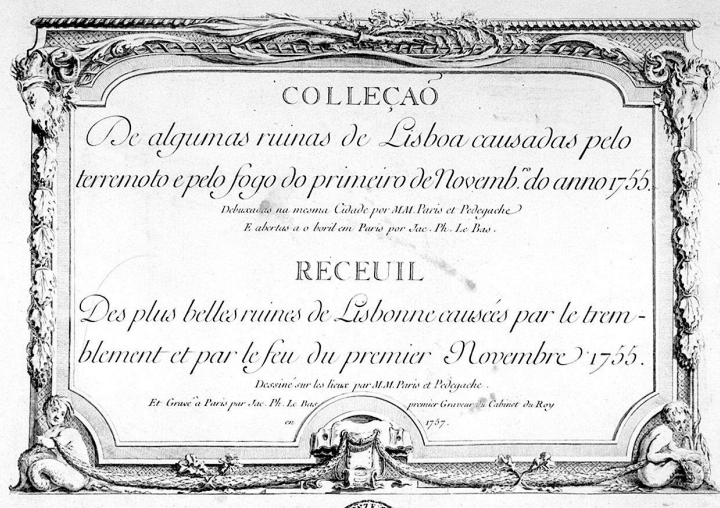 COLLEÇAÕ
De algumas ruinas de Lisboa causadas pelo
terremoto e pelo fogo do primeiro de Novemb.ro do anno 1755.
Debuxadas na mesma Cidade por MM. Paris et Pedegache
E abertas a o boril em Paris por Jac. Ph. Le Bas.
RECEUIL
Des plus belles ruines de Lisbonne causées par le trem-
blement et par le feu du premier Novembre 1755.
Dessiné sur les lieux par MM. Paris et Pedegache.
Et Gravé à Paris par Jac. Ph. Le Bas premier Graveur du Cabinet du Roy
en 1757.